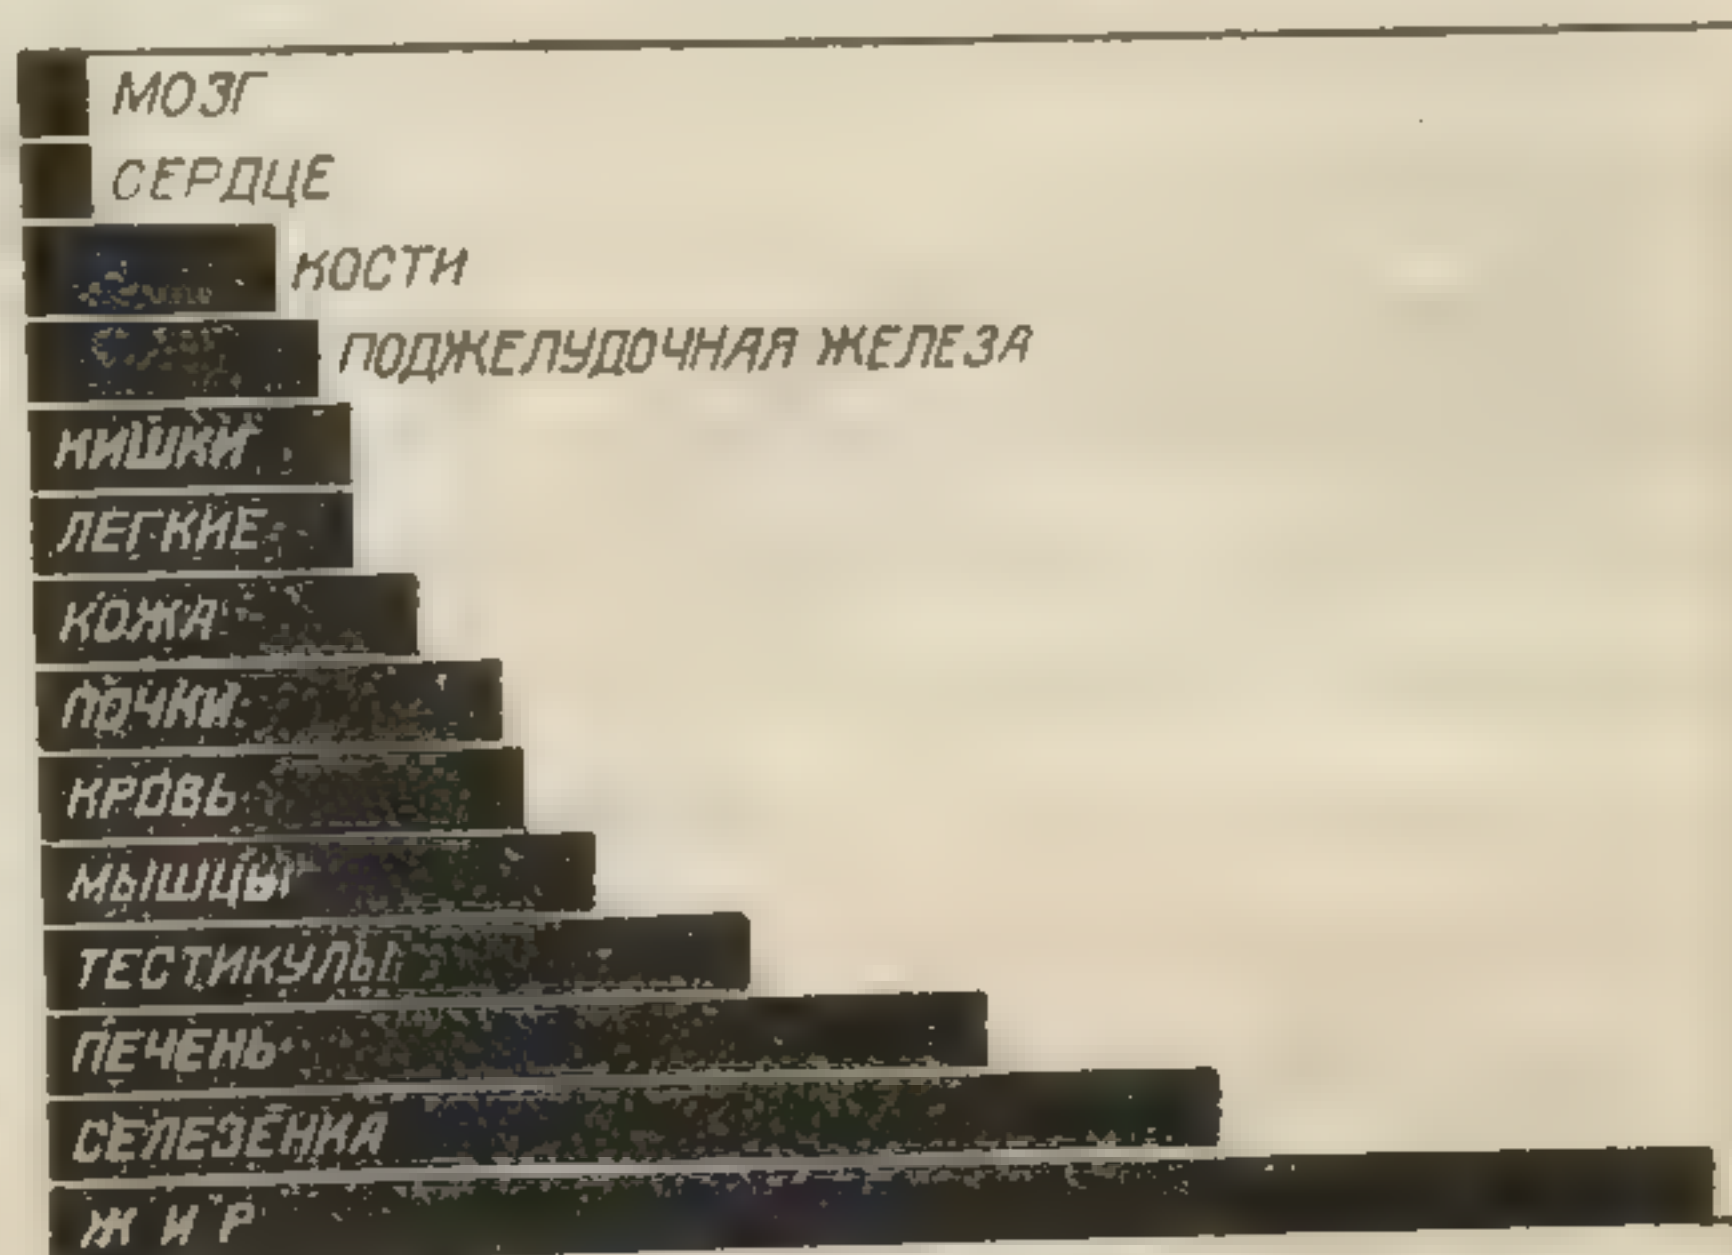 МОЗГ
СЕРДЦЕ
КОСТИ
ПОДЖЕЛУДОЧНАЯ ЖЕЛЕЗА
КИШКИ
ЛЕГКИЕ
КОЖА
ПОЧКИ
КРОВЬ
МЫШЦЫ
ТЕСТИКУЛЫ
ПЕЧЕНЬ
СЕЛЕЗЕНКА
Ж И Р